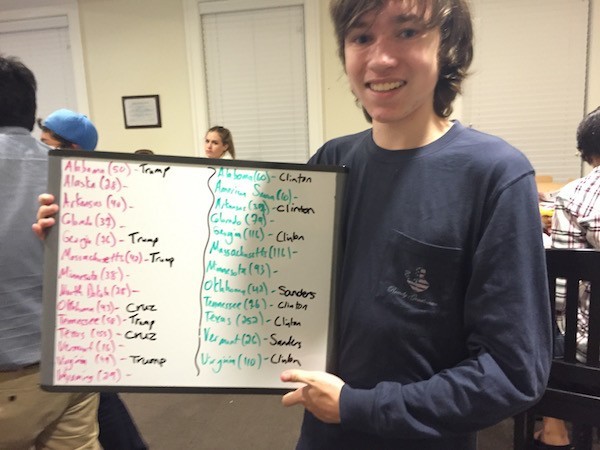 Alabama (50) - Trump
Alaska (28) -
Arkansas (40) -
Colorado (37) -
Georgia (76) - Trump
Massachusetts (42) - Trump
Minnesota (38) -
North Dakota (28) -
Oklahoma (43) - Cruz
Tennessee (58) - Trump
Texas (155) - Cruz
Vermont (16) -
Virginia (49) - Trump
Wyoming (29) -
Alabama (60) - Clinton
American Samoa (10) -
Arkansas (37) - Clinton
Colorado (79) -
Georgia (116) - Clinton
Massachusetts (116) -
Minnesota (93) -
Oklahoma (42) - Sanders
Tennessee (76) - Clinton
Texas (252) - Clinton
Vermont (26) - Sanders
Virginia (110) - Clinton